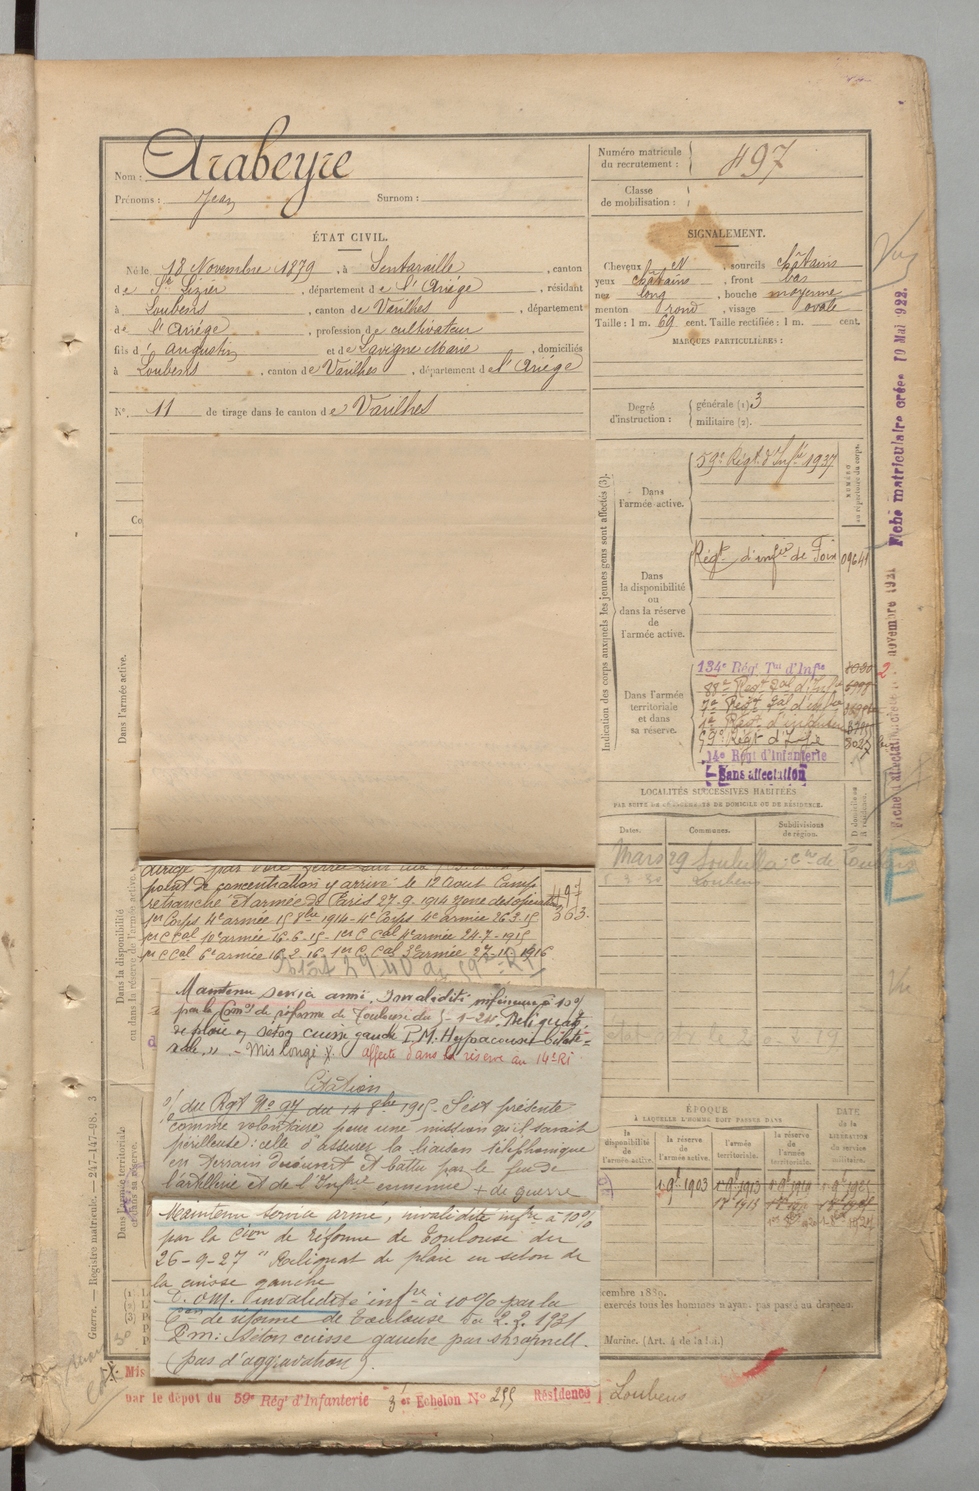 Nom : Arabeyre
Prénoms : Jean Surnom :
Numéro matricule du recrutement : 497
Classe de mobilisation :
ÉTAT CIVIL.
Né le 18 Novembre 1879, à Sentaraille, canton
de St Lizier, département de l'Ariège, résidant
à Loubens, canton de Varilhes, département
de l'Ariège, profession de cultivateur
fils d' Augustin et de Lavigne Marie, domiciliés
à Loubens, canton de Varilhes, département de l'Ariège
N°. 11 de tirage dans le canton de Varilhes
SIGNALEMENT.
Cheveux N, sourcils châtains
yeux châtains, front bas
nez long, bouche moyenne
menton rond, visage ovale
Taille : 1 m. 69 cent. Taille rectifiée : 1 m. cent.
MARQUES PARTICULIÈRES :
Degré d'instruction : générale (1) 3
militaire (2).
Co
Dans l'armée active.
Indication des corps auxquels les jeunes gens sont affectés (3).
NUMÉRO au répertoire du corps.
Dans l'armée active.
59e Régt d'Infie 1937
Dans la disponibilité ou dans la réserve de l'armée active.
Régt d'infie de Foix 09641
Dans l'armée territoriale et dans sa réserve.
134e Régt Tal d'Infie
88e Regt
7e Regt
1er Régt
59e Régt d'Infie
14e Régt d'Infanterie
Sans affectation
LOCALITÉS SUCCESSIVES HABITÉES
PAR SUITE DE CHANGEMENTS DE DOMICILE OU DE RÉSIDENCE.
Dates. Communes. Subdivisions de région. D. domicile ou R. résidence.
Mars 29
Loubens
Fiche matriculaire créée 10 Mai 1922.
novembre 1931
Dans la disponibilité ou dans la réserve de l'armée active.
point de concentration y arrivé le 12 Aout Camp
retranché et armée de Paris 27.9.1914 zone des opérations
1er Corps 4e armée 15 8bre 1914 - 4e Corps 4e armée 26.3.15
1er C Cal 10e armée 16.6.15 - 1er C Cal 4e armée 24.7-1915
1er C Cal 6e armée 16.2.16 - 1er C. Cal 3e armée 27.11.1916
497
363.
Maintenu service armé. Invalidité inférieure à 10%
par la Comon de réforme de Toulouse du 5-1-25. Reliquat
de plaie en séton cuisse gauche P.M. Hypoacousie bilaté-
rale. " - Mis Congé
affecté dans la réserve au 14e RI
Citation
O/ du Rgt No 97 du 14 8bre 1915 - S'est présenté
comme volontaire pour une mission qu'il savait
périlleuse : celle d'assurer la liaison téléphonique
en terrain découvert et battu par le feu de
l'artillerie et de l'Infrie ennemie + de guerre
Maintenu service armé, invalidité infre à 10%
par la Cion de réforme de Toulouse du
26-9-27 " Reliquat de plaie en séton de
la cuisse gauche
invalidité infre à 10% par la
Con de réforme de Toulouse du 2.2.1931
P.m : Séton cuisse gauche par shrapnell.
(pas d'aggravation).
Dans l'armée territoriale et dans sa réserve.
ÉPOQUE
À LAQUELLE L'HOMME DOIT PASSER DANS
DATE de la LIBÉRATION DU SERVICE MILITAIRE.
la disponibilité de l'armée active. la réserve de l'armée active. l'armée territoriale. la réserve de l'armée territoriale.
1 9bre 1903
cembre 1889.
exercés tous les hommes n'ayant pas passé au drapeau.
Marine. (Art. 4 de la loi.)
Guerre. — Registre matricule. — 247-147-98. 3
Mis
par le dépôt du 59e Régt d'Infanterie 3 et Echelon N° 255 Résidence Loubens